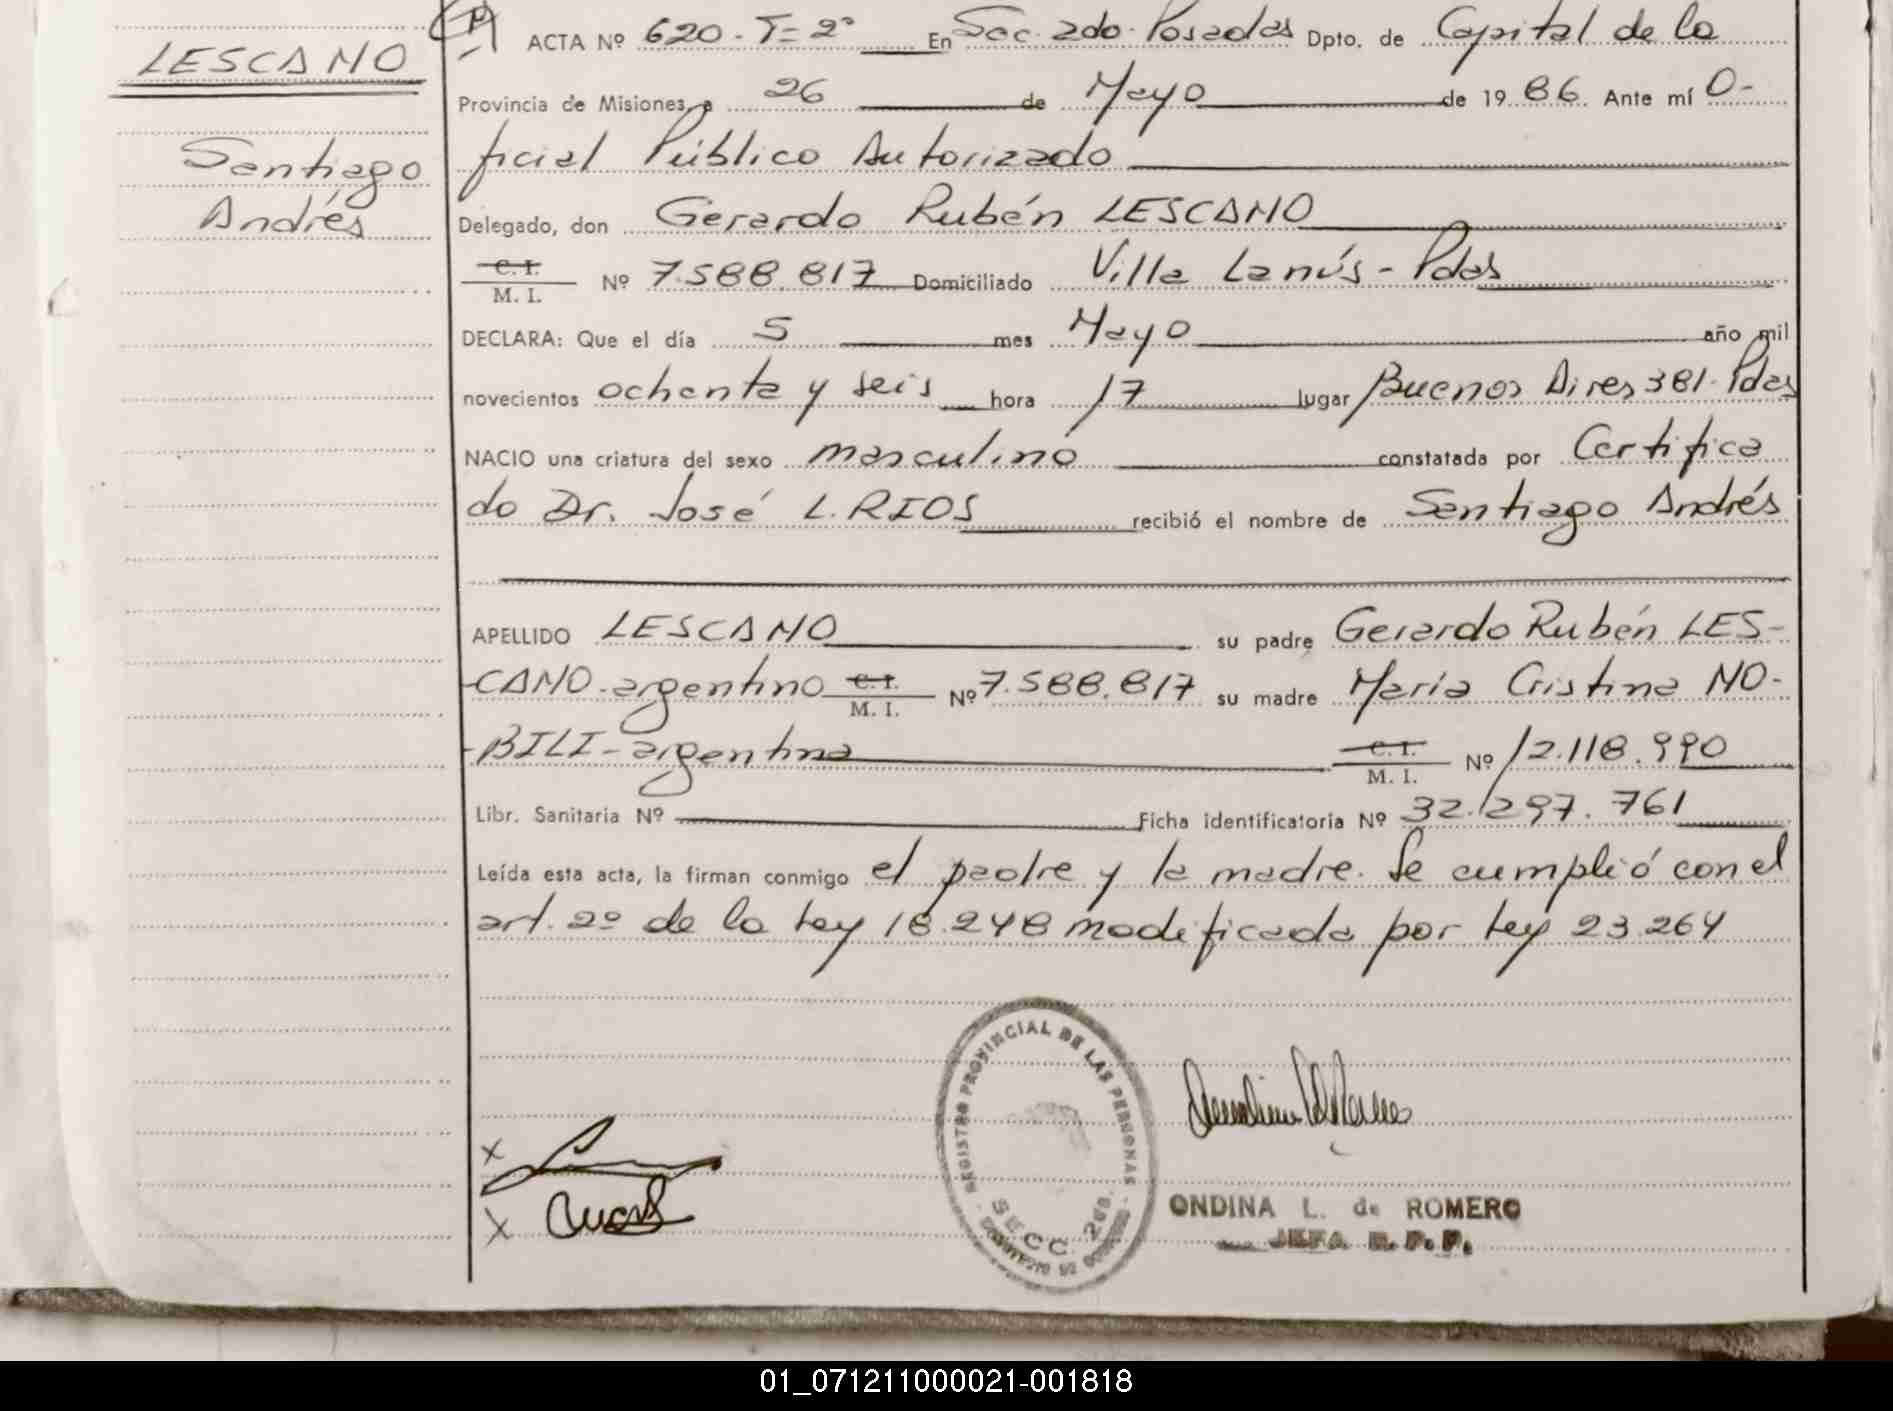 LESCANO
Santiago
Andrés
ACTA Nº 620 - T= 2º En Secc. 2do. Posadas Dpto. de Capital de la
Provincia de Misiones, a 26 de Mayo de 19 86. Ante mí O-
ficial Público Autorizado
Delegado, don Gerardo Rubén LESCANO
C. I.
M. I. Nº 7.588.817 Domiciliado Villa Lanús - Pdas
DECLARA: Que el día 5 mes Mayo año mil
novecientos ochenta y seis hora 17 lugar Buenos Aires 381. Pdas
NACIO una criatura del sexo masculino constatada por Certifica
do Dr. José L. RIOS recibió el nombre de Santiago Andrés
APELLIDO LESCANO su padre Gerardo Rubén LES-
-CANO - argentino C. I. M. I. Nº 7.588.817 su madre María Cristina NO-
-BILI - argentina C. I. M. I. Nº 12.118.990
Libr. Sanitaria Nº Ficha identificatoria Nº 32.297.761
Leída esta acta, la firman conmigo el padre y la madre. Se cumplió con el
art. 2º de la Ley 18.248 modificada por Ley 23.264
REGISTRO PROVINCIAL DE LAS PERSONAS
SECC. 2da.
X
X
ONDINA L. de ROMERO
JEFA R. P. P.
01_071211000021-001818